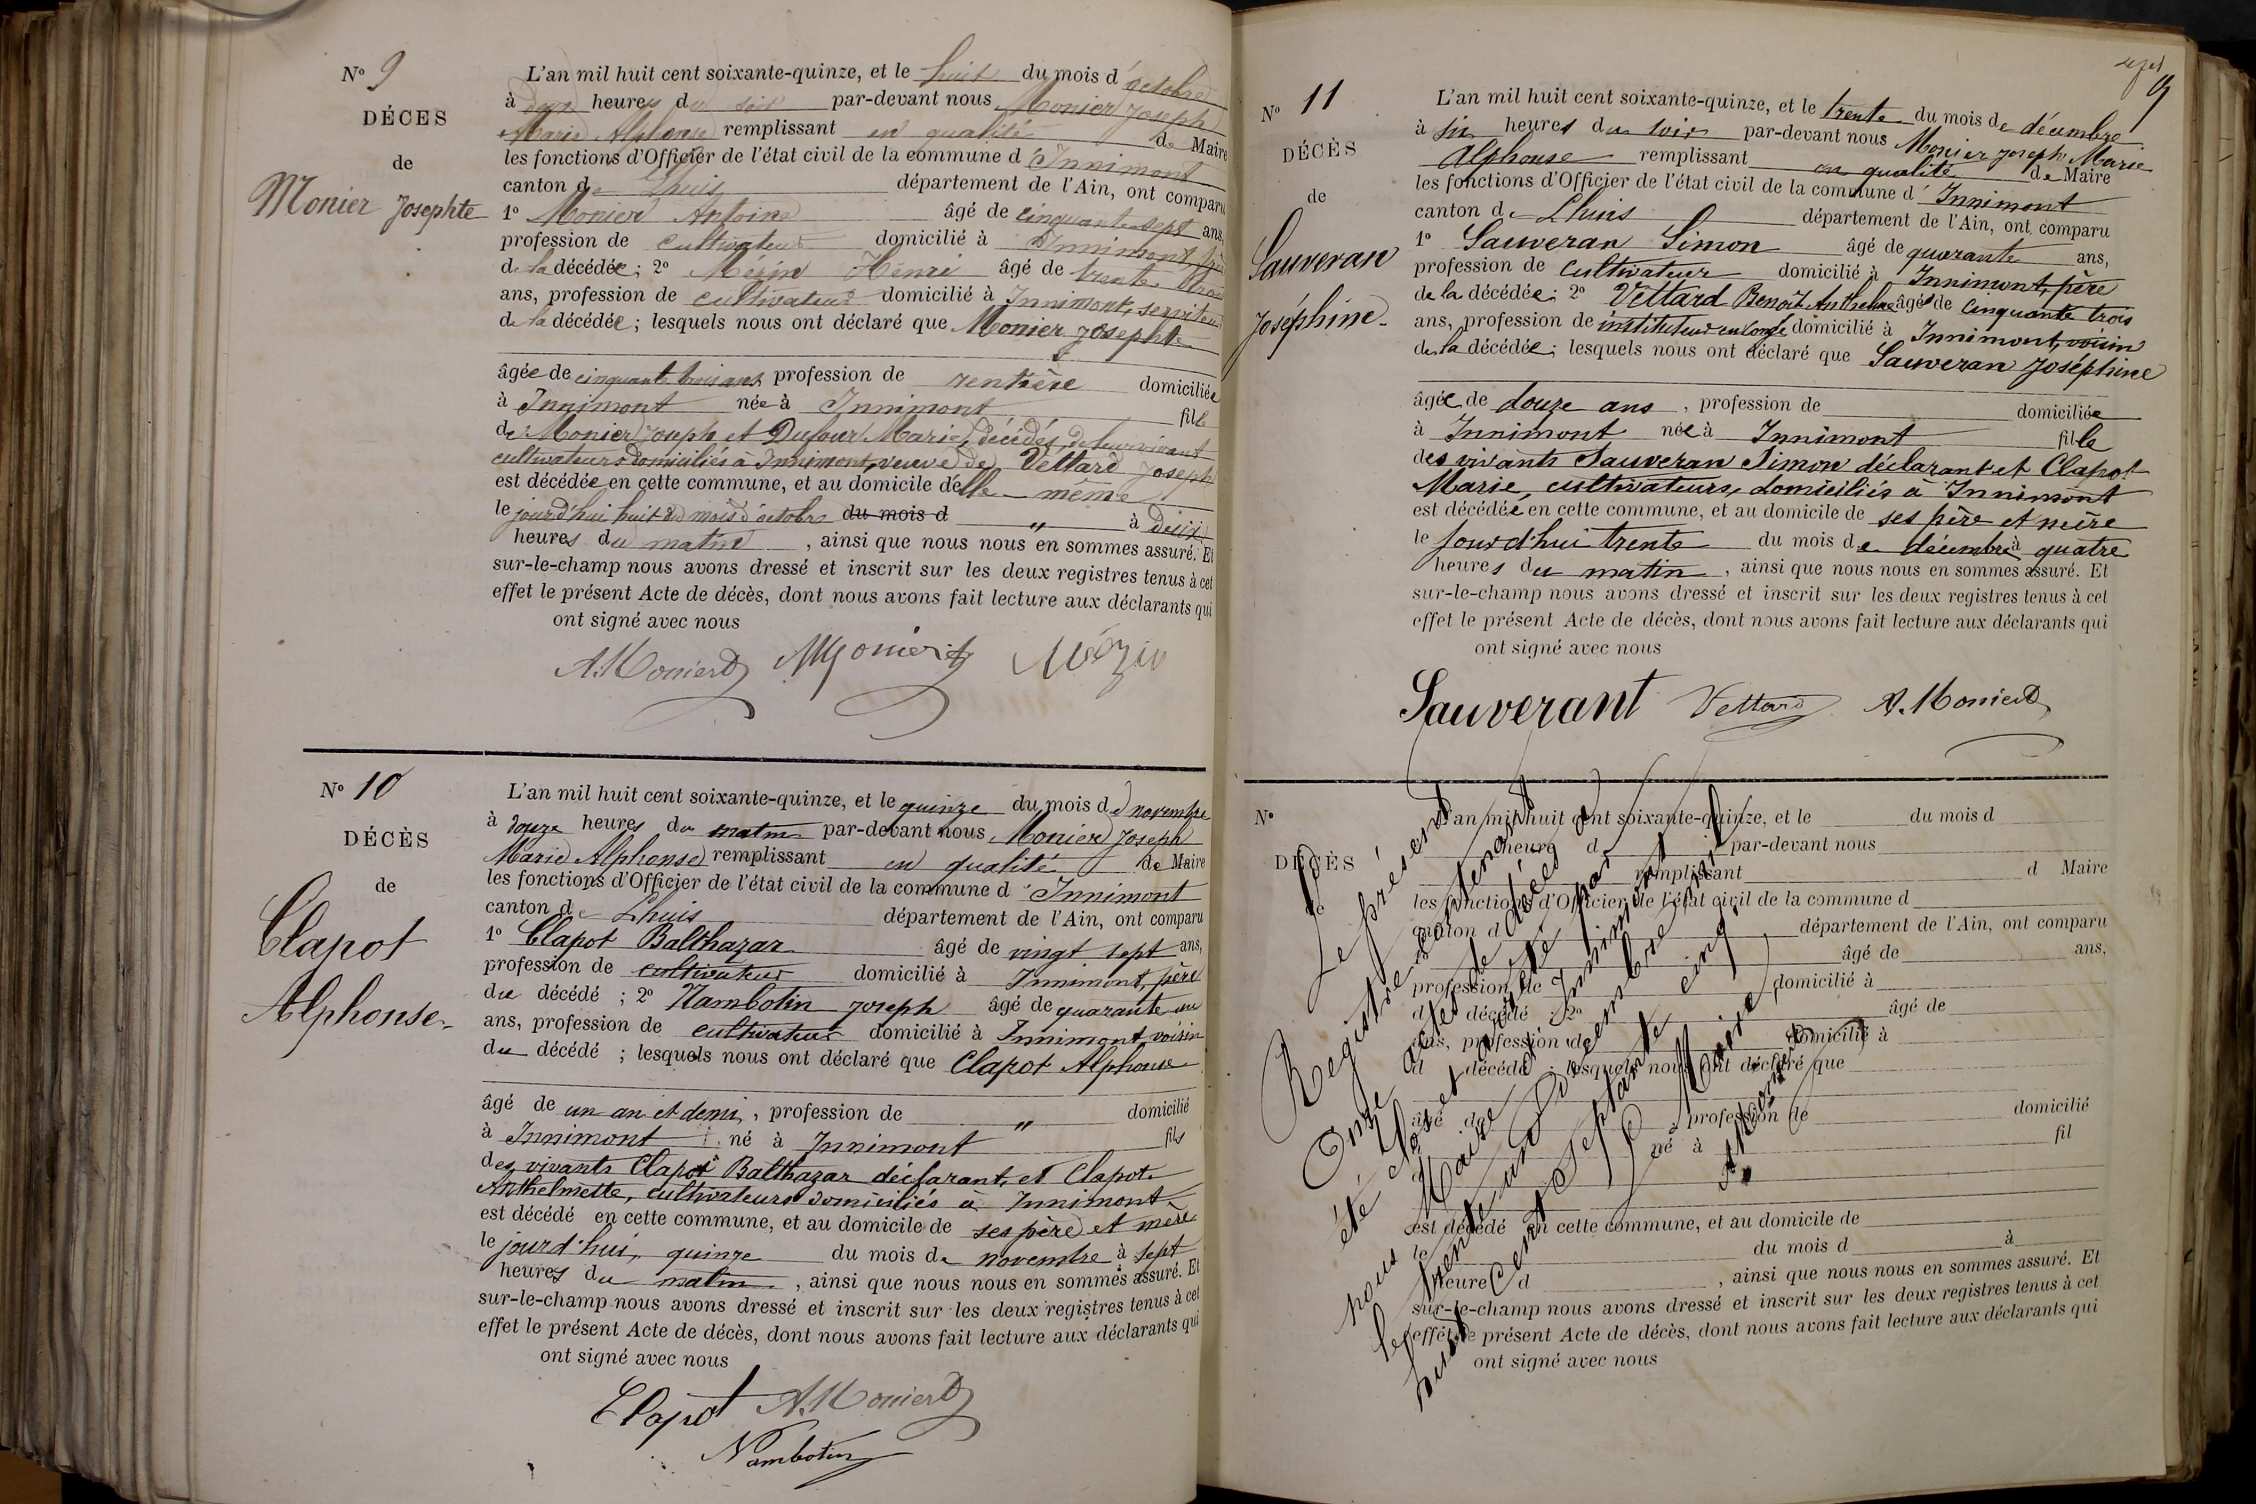 N° 9
DÉCES
de
Monier Josephte
L'an mil huit cent soixante-quinze, et le huit du mois d'octobre
à deux heures du soir par-devant nous Monier Joseph
Marie Alphonse remplissant en qualité de Maire
les fonctions d'Officier de l'état civil de la commune d'Innimont
canton de Lhuis département de l'Ain, ont comparu
1° Monier Antoine âgé de cinquante-sept ans,
profession de cultivateur domicilié à Innimont, frère
de la décédée; 2° Mézin Henri âgé de trente trois
ans, profession de cultivateur domicilié à Innimont, serviteur
de la décédée; lesquels nous ont déclaré que Monier Josephte
âgée de cinquante trois ans profession de rentière domiciliée
à Innimont née à Innimont fille
de Monier Joseph et Dufour Marie, décédés, de leur vivant
cultivateurs domiciliés à Innimont, veuve de Vettard Joseph
est décédée en cette commune, et au domicile d'elle-même
le jourd'hui huit du mois d'octobre du mois d " à deux
heures du matin, ainsi que nous nous en sommes assuré. Et
sur-le-champ nous avons dressé et inscrit sur les deux registres tenus à cet
effet le présent Acte de décès, dont nous avons fait lecture aux déclarants qui
ont signé avec nous
A. Monier Monier Mézin
N° 10
DÉCÈS
de
Clapot
Alphonse
L'an mil huit cent soixante-quinze, et le quinze du mois de novembre
à douze heures du matin par-devant nous Monier Joseph
Marie Alphonse remplissant en qualité de Maire
les fonctions d'Officier de l'état civil de la commune d'Innimont
canton de Lhuis département de l'Ain, ont comparu
1° Clapot Balthazar âgé de vingt sept ans,
profession de cultivateur domicilié à Innimont, père
du décédé; 2° Nambotin Joseph âgé de quarante un
ans, profession de cultivateur domicilié à Innimont voisin
du décédé; lesquels nous ont déclaré que Clapot Alphonse
âgé de un an et demi, profession de " domicilié
à Innimont né à Innimont fils
des vivants Clapot Balthazar déclarant, et Clapot
Anthelmette, cultivateurs domiciliés à Innimont
est décédé en cette commune, et au domicile de ses père et mère
le jourd'hui, quinze du mois de novembre à sept
heures du matin, ainsi que nous nous en sommes assuré. Et
sur-le-champ nous avons dressé et inscrit sur les deux registres tenus à cet
effet le présent Acte de décès, dont nous avons fait lecture aux déclarants qui
ont signé avec nous
Clapot A. Monier
Nambotin
N° 11
DÉCÈS
de
Sauveran
Joséphine
L'an mil huit cent soixante-quinze, et le trente du mois de décembre
à six heures du soir par-devant nous Monier Joseph Marie
Alphonse remplissant en qualité de Maire
les fonctions d'Officier de l'état civil de la commune d'Innimont
canton de Lhuis département de l'Ain, ont comparu
1° Sauveran Simon âgé de quarante ans,
profession de cultivateur domicilié à Innimont, père
de la décédée; 2° Vettard Benoît Anthelme âgé de cinquante trois
ans, profession de instituteur en congé domicilié à Innimont, voisin
de la décédée; lesquels nous ont déclaré que Sauveran Joséphine
âgée de douze ans, profession de domiciliée
à Innimont née à Innimont fille
des vivants Sauveran Simon déclarant et Clapot
Marie, cultivateurs, domiciliés à Innimont
est décédée en cette commune, et au domicile de ses père et mère
le jourd'hui trente du mois de décembre à quatre
heures du matin, ainsi que nous nous en sommes assuré. Et
sur-le-champ nous avons dressé et inscrit sur les deux registres tenus à cet
effet le présent Acte de décès, dont nous avons fait lecture aux déclarants qui
ont signé avec nous
Sauverant Vettard A. Monier
N°
DÉCÈS
de
L'an mil huit cent soixante-quinze, et le du mois d
à heure d par-devant nous
remplissant d Maire
les fonctions d'Officier de l'état civil de la commune d
canton d département de l'Ain, ont comparu
1° âgé de ans,
profession de domicilié à
d décédé; 2° âgé de
ans, profession de domicilié à
d décédé; lesquels nous ont déclaré que
âgé de profession de domicilié
à né à fil
est décédé en cette commune, et au domicile de
le du mois d à
heure d, ainsi que nous nous en sommes assuré. Et
sur-le-champ nous avons dressé et inscrit sur les deux registres tenus à cet
effet le présent Acte de décès, dont nous avons fait lecture aux déclarants qui
ont signé avec nous
Le présent
Registre contenant
Onze actes de décès a
été clos et arrêté par
nous Maire d'Innimont
le trente un Décembre mil
huit cent septante cinq,
Le Maire,
A. Monier